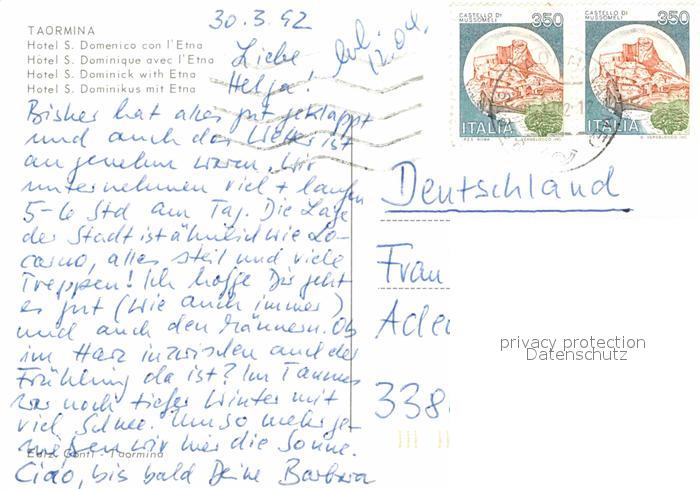 30.3.92
TAORMINA
Hotel S. Domenico con l'Etna
Hôtel S. Dominique avec l'Etna
Hotel S. Dominick with Etna
Hotel S. Dominikus mit Etna
Liebe
Helga!
12.04.
Bisher hat alles gut geklappt
und auch das Wetter ist
angenehm warm. Wir
unternehmen viel + laufen
5-6 Std am Tag. Die Lage
der Stadt ist ähnlich wie Lo-
carno, alles steil und viele
Treppen! Ich hoffe Dir geht
es gut (wie auch immer)
und auch den Männern. Ob
im Harz inzwischen auch der
Frühling da ist? Im Taunus
war noch tiefer Winter mit
viel Schnee. Um so mehr ge-
nießen wir hier die Sonne.
Ciao, bis bald Deine Barbara
Conti - Taormina
CASTELLO DI
MUSSOMELI
350
ITALIA
CASTELLO DI
MUSSOMELI
350
ITALIA
Deutschland
Frau
338
privacy protection
Datenschutz